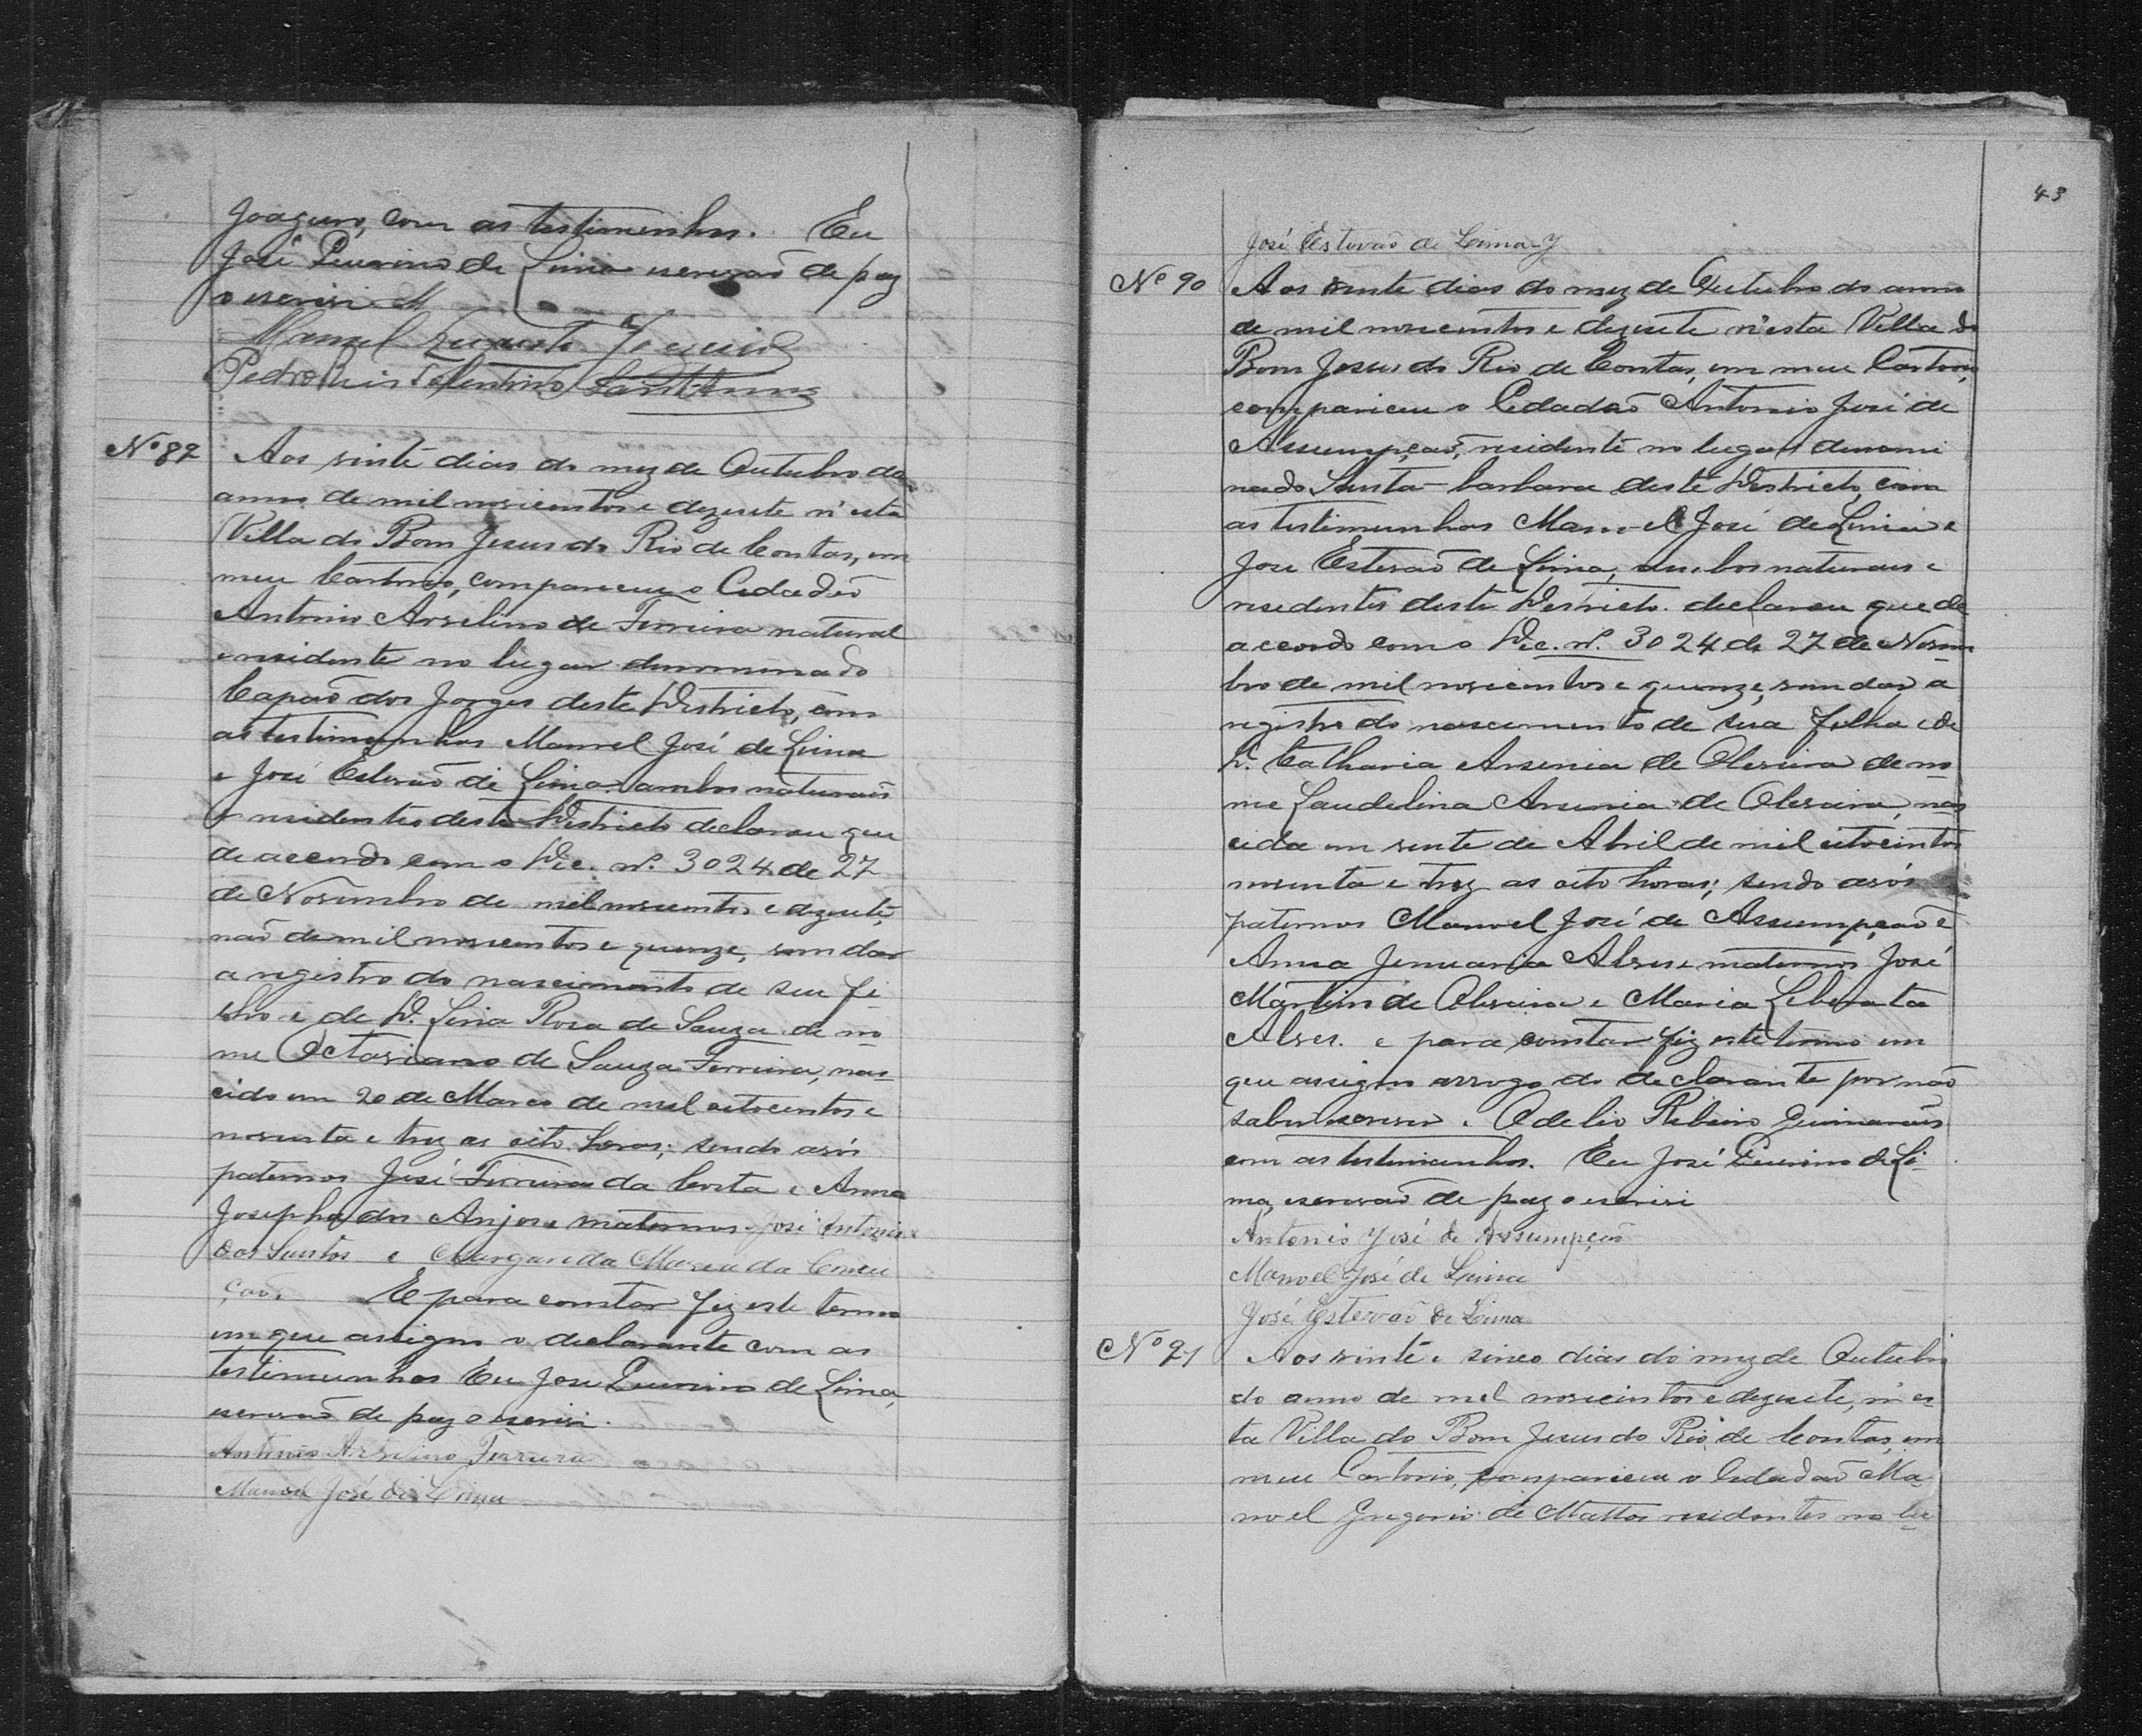 Joaquim, com as testimunhas. Eu
José Quirino de Lima escrivaõ de paz
o escrivi.
Manoel Augusto
Pedro Luis Tolentino Sant'Anna
Nº 89
Aos vinte dias do mez de Outubro do
anno de mil novicentos e dezesete n'esta
Villa do Bom Jesus do Rio de Contas, em
meu Cartorio, compareceu o Cidadão
Antonio Arselino de Ferreira natural
e residente no lugar denominado
Capaõ dos Jorges deste Districto, com
as testimunhas Manoel José de Lima
e José Estevaõ de Lima ambos naturais
e residentes deste Districto declarou que
de accordo com o Dec. nº. 3024 de 27
de Novembro de mil novecentos e dezesete,
naõ de mil novicentos e quinze, vem dar
a registro do nascimento de seu fi
lho e de D. Liria Rosa de Souza de no
me Octaviano de Souza Ferreira, nas
cido em 20 de Março de mil oitocentos e
noventa e trez as oito horas; sendo avós
paternos José Ferreira da Costa e Anna
Josepha dos Anjos e maternos José Antonio
dos Santos e Margarida Maria da Concei
çaõ. E para constar fiz este termo
em que assigno o declarante com as
testimunhas Eu José Quirino de Lima,
escrivaõ de paz o escrivi.
Antonio Arselino Ferreira
Manoel José de Lima
43
José Estevaõ de Lima
Nº 90
Aos vinte dias do mez de Outubro do anno
de mil novicentos e dezesete n'esta Villa do
Bom Jesus do Rio de Contas, em meu Cartorio,
compariceu o Cidadaõ Antonio José de
Assumpçaõ, residente no lugar denomi
nado Santa-barbara deste Districto, com
as testimunhas Manoel José de Lima e
José Estevaõ de Lima, ambos naturais e
residentes deste Districto. declarou que de
accordo com o Dec. nº. 3024 de 27 de Novem
bro de mil novicentos e quinze, vem dar a
registro do nascimento de sua filha e de
D. Catharia Arsenia de Oliveira de no
me Laudelina Arsenia de Oliveira, nas
cida em vinte de Abril de mil oitocentos
noventa e trez as oito horas; sendo avós
paternos Manoel José de Assumpçaõ e
Anna Jenuaria Alves e maternos José
Martins de Oliveira e Maria Liberata
Alves. e para constar fiz este termo em
que assigno arrogo do declarante por naõ
saber escrever. Odelio Ribeiro Guimarães
com as testimunhas. Eu José Quirino de Li
ma, escrivaõ de paz o escrivi
Antonio José de Assumpçaõ
Manoel José de Lima
José Estevaõ de Lima
Nº 91
Aos vinte e sinco dias do mez de Outubro
do anno de mil novicentos e dezesete, n'es
ta Villa do Bom Jesus do Rio de Contas, em
meu Cartorio, compariceu o Cidadaõ Ma
noel Gregorio de Mattos residentes no lu